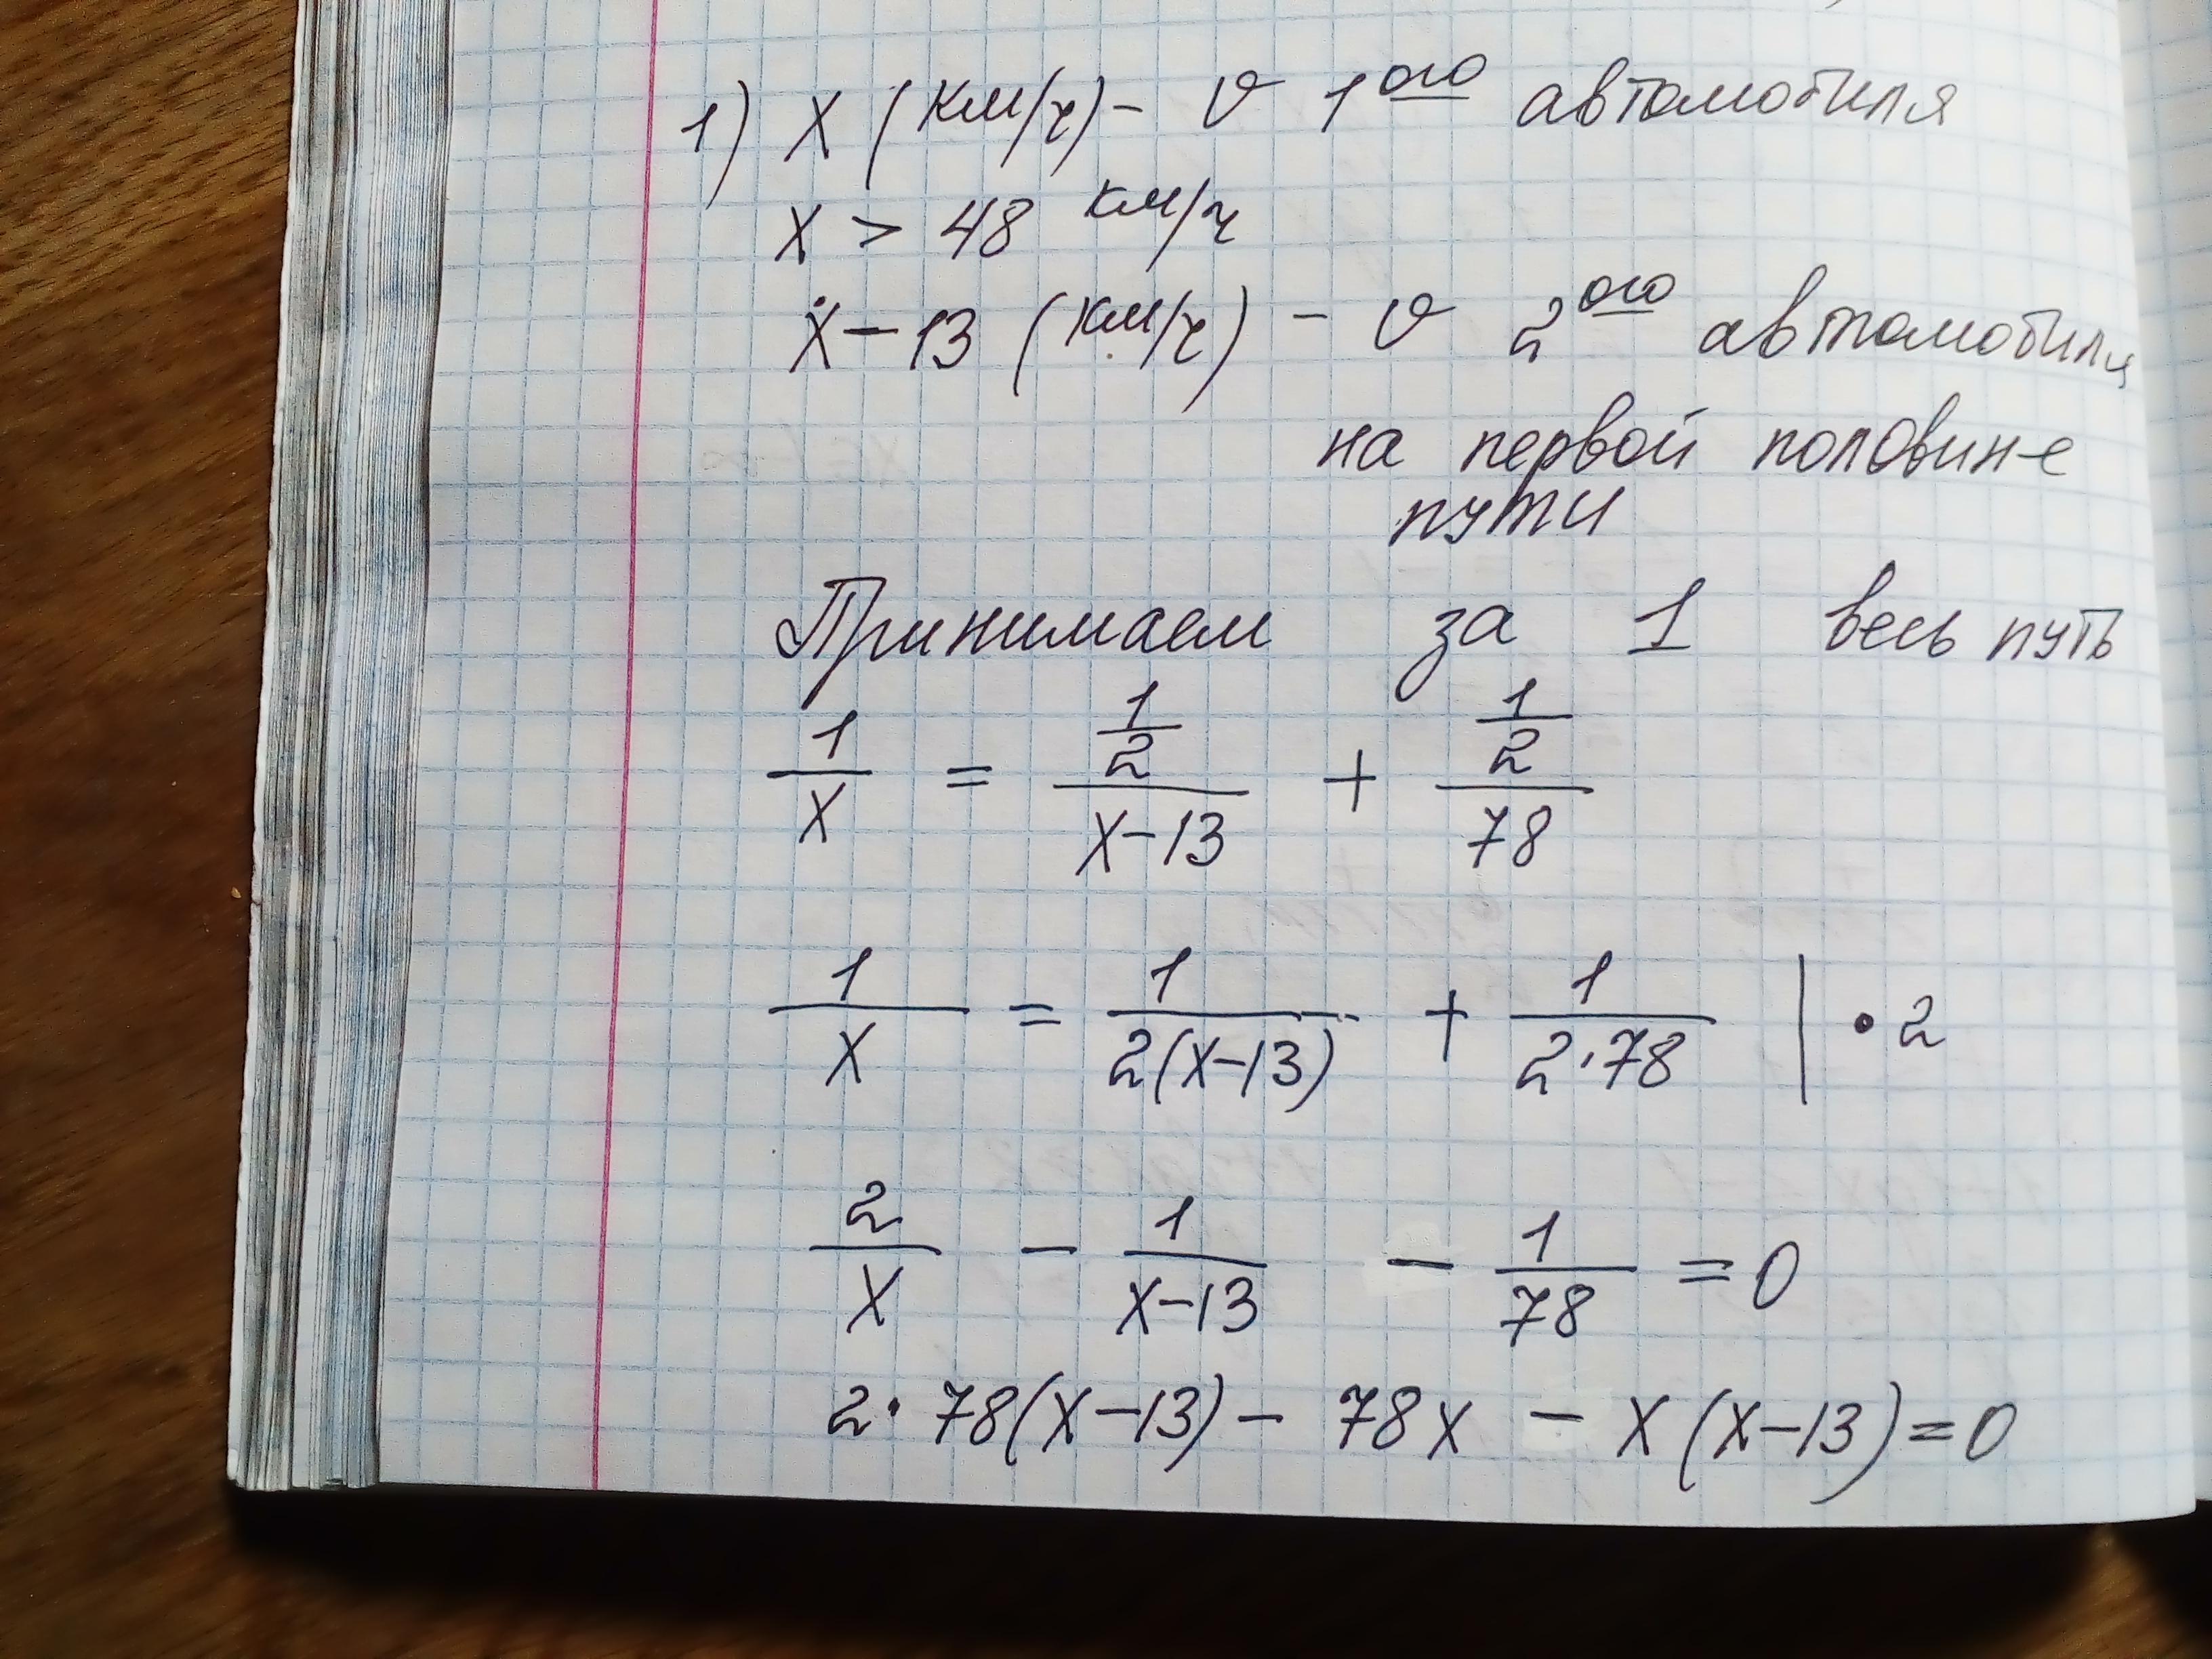 1) x (км/ч) - v 1ого автомобиля
x > 48 км/ч
x - 13 (км/ч) - v 2ого автомобиля
на первой половине
пути
Принимаем за 1 весь путь
1/x = (1/2)/(x-13) + (1/2)/78
1/x = 1/(2(x-13)) + 1/(2·78) | · 2
2/x - 1/(x-13) - 1/78 = 0
2·78(x-13) - 78x - x(x-13) = 0